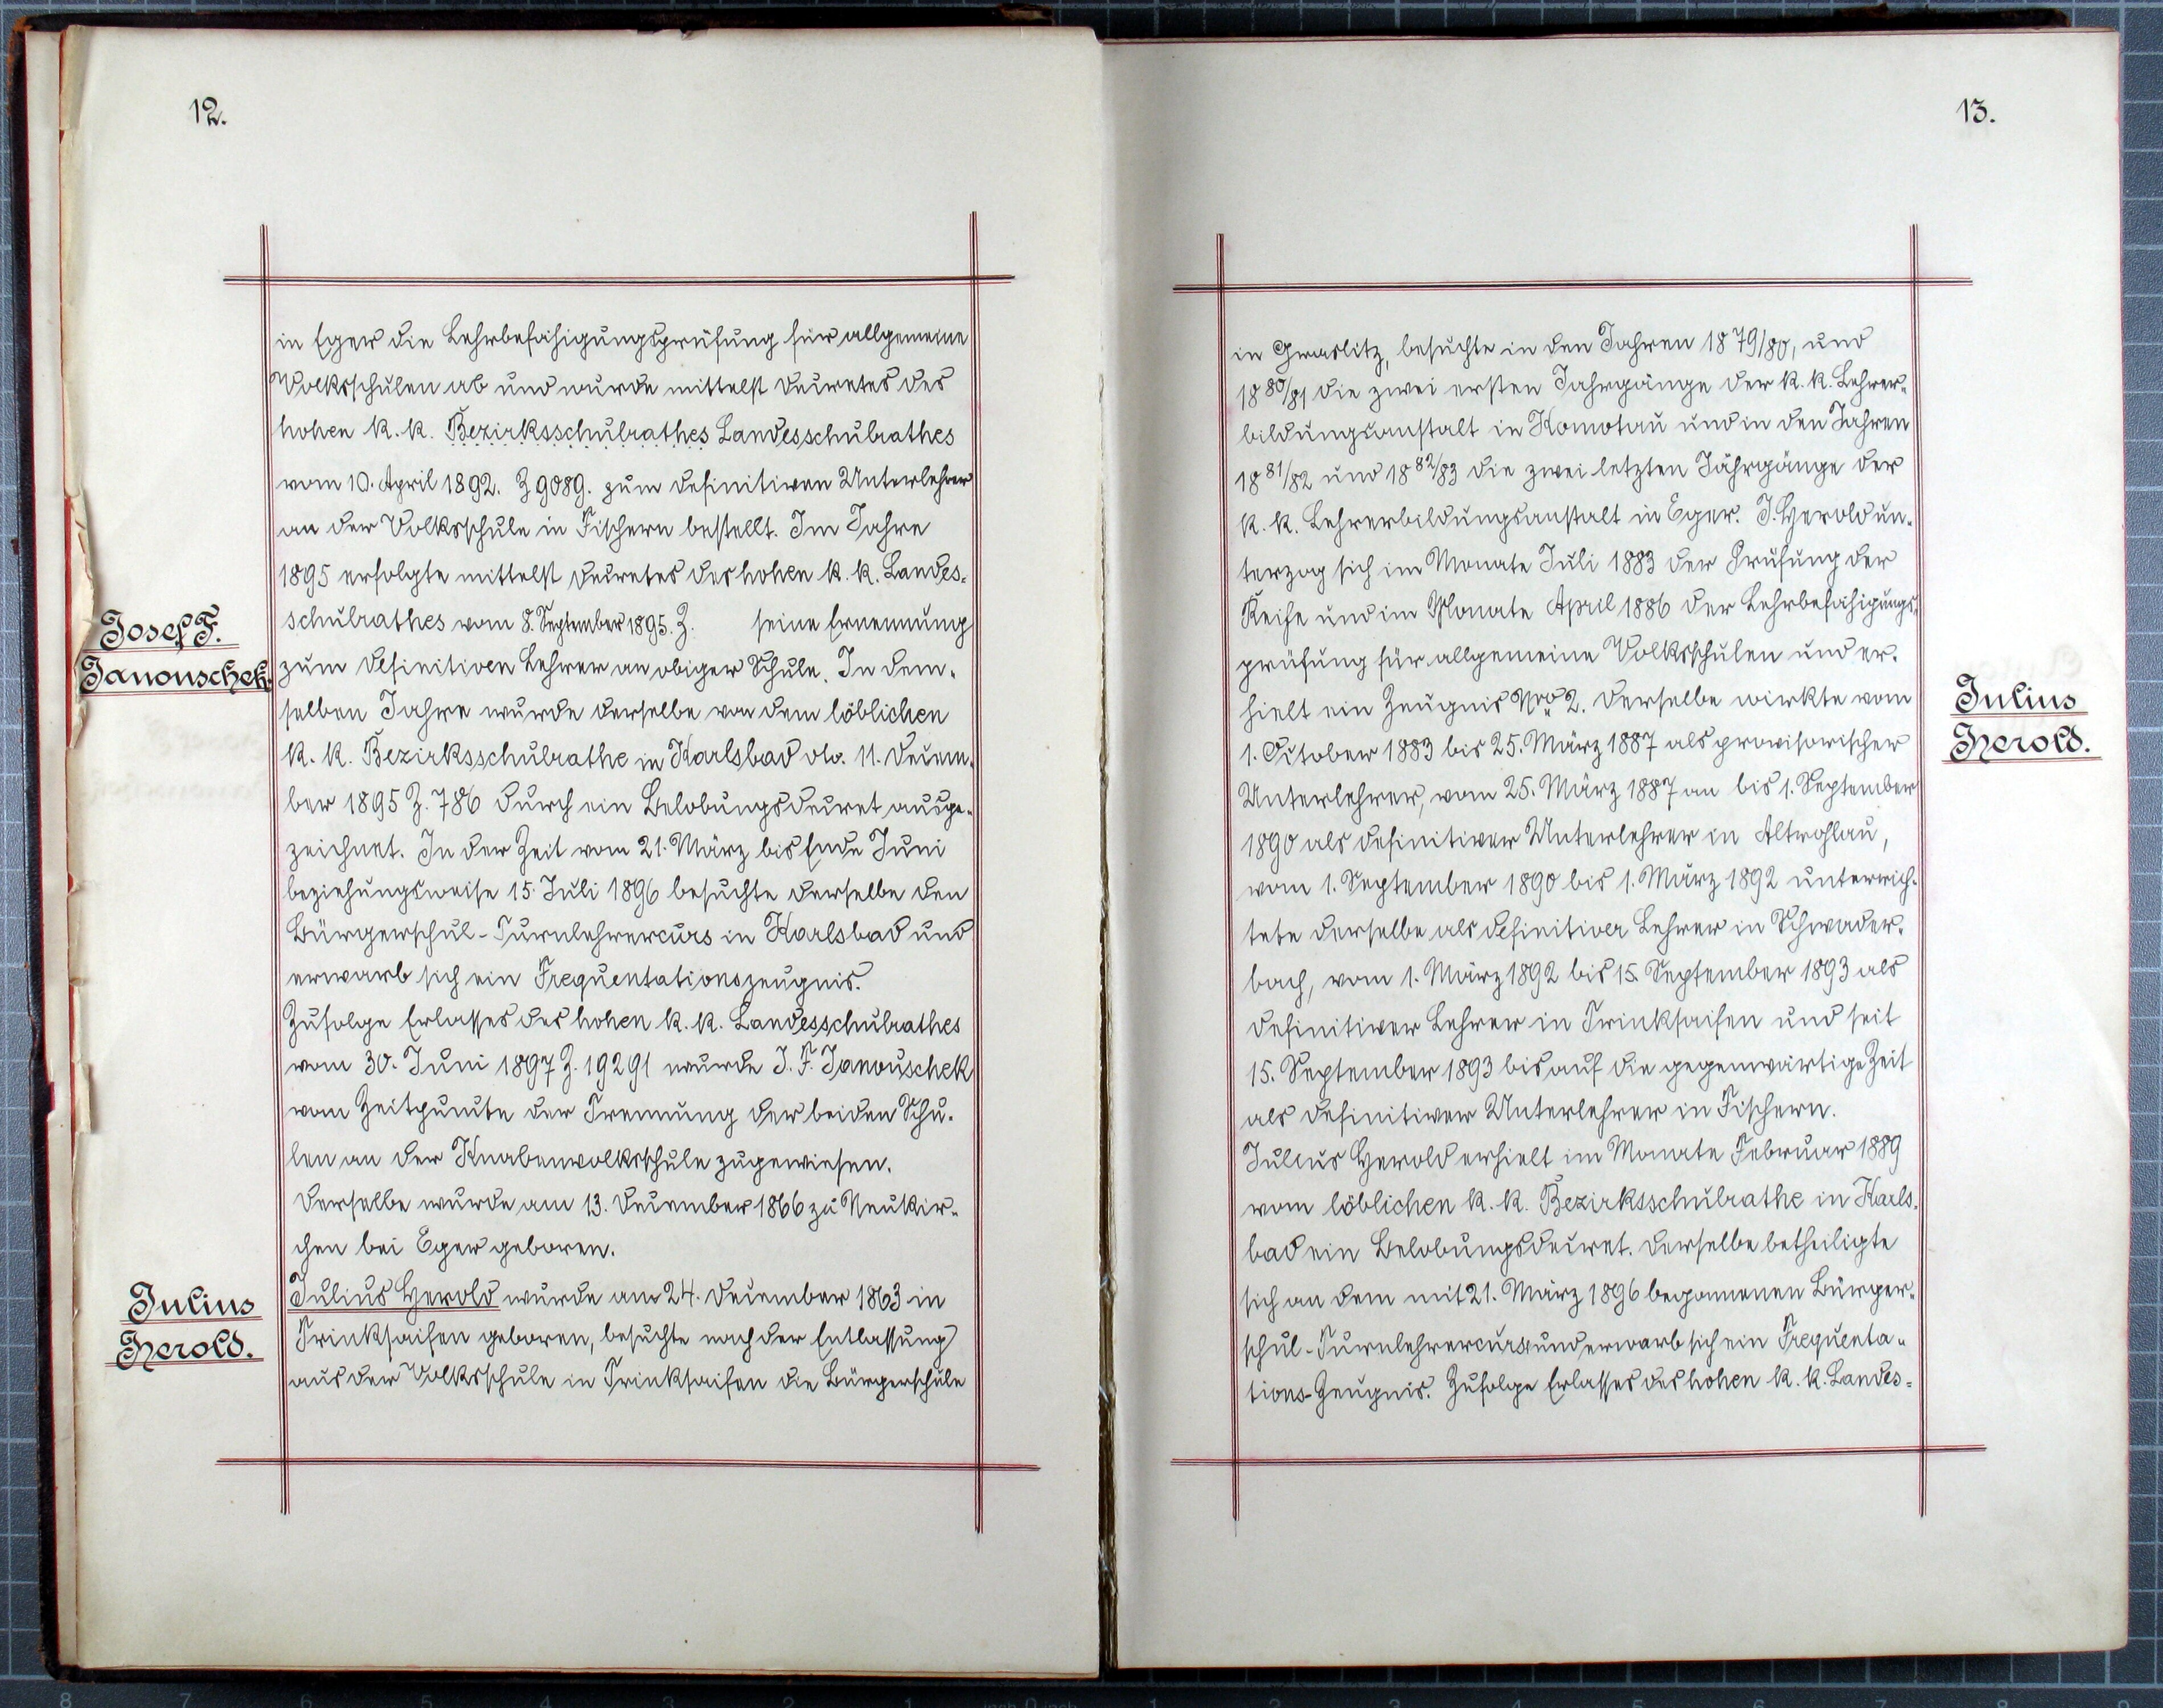 12.
in Eger die Lehrbefähigungsprüfung für allgemeine
Volksschulen ab und wurde mittelst Decretes des
hohen k. k. Bezirksschulrathes Landesschulrathes
vom 10. April 1892. Z 9089. zum definitiven Unterlehrer
an der Volksschule in Fischern bestellt. Im Jahre
1895 erfolgte mittelst Decretes des hohen k. k. Landes-
schulrathes vom 8. September 1895. Z. seine Ernennung
Josef F.
Janouschek.
zum definitiven Lehrer an obiger Schule. In dem-
selben Jahre wurde derselbe von dem löblichen
k. k. Bezirksschulrathe in Karlsbad dto. 11. Decem-
ber 1895 Z. 786 durch ein Belobungsdecret ausge-
zeichnet. In der Zeit vom 21. März bis Ende Juni
beziehungsweise 15. Juli 1896 besuchte derselbe den
Bürgerschul-Turnlehrercurs in Karlsbad und
erwarb sich ein Frequentationszeugnis.
Zufolge Erlasses des hohen k. k. Landesschulrathes
vom 30. Juni 1897 Z. 19291 wurde J. F. Janouschek
vom Zeitpuncte der Trennung der beiden Schu-
len an der Knabenvolksschule zugewiesen.
Derselbe wurde am 13. December 1866 zu Neukir-
chen bei Eger geboren.
Julius
Herold.
Julius Herold wurde am 24. December 1863 in
Trinksaifen geboren, besuchte nach der Entlassung
aus der Volksschule in Trinksaifen die Bürgerschule
13.
in Graslitz, besuchte in den Jahren 1879/80, und
1880/81 die zwei ersten Jahrgänge der k. k. Lehrer-
bildungsanstalt in Komotau und in den Jahren
1881/82 und 1882/83 die zwei letzten Jährgänge der
k. k. Lehrerbildungsanstalt in Eger. J. Herold un-
terzog sich im Monate Juli 1883 der Prüfung der
Reife und im Monate April 1886 der Lehrbefähigungs-
prüfung für allgemeine Volksschulen und er-
hielt ein Zeugnis Nro 2. Derselbe wirkte vom
Julius
Herold.
1. October 1883 bis 25. März 1887 als provisorischer
Unterlehrer, vom 25. März 1887 an bis 1. September
1890 als definitiver Unterlehrer in Altrohlau,
vom 1. September 1890 bis 1. März 1892 unterrich-
tete derselbe als definitiver Lehrer in Schwader-
bach, vom 1. März 1892 bis 15. September 1893 als
definitiver Lehrer in Trinksaifen und seit
15. September 1893 bis auf die gegenwärtige Zeit
als definitiver Unterlehrer in Fischern.
Julius Herold erhielt im Monate Februar 1889
vom löblichen k. k. Bezirksschulrathe in Karls-
bad ein Belobungsdecret. Derselbe betheiligte
sich an dem mit 21. März 1896 begonnenen Bürger-
schul-Turnlehrercurs und erwarb sich ein Frequenta-
tions-Zeugnis. Zufolge Erlasses des hohen k. k. Landes-
8 7 6 5 4 3 2 1 inch 0 inch 1 2 3 4 5 6 7 8 9